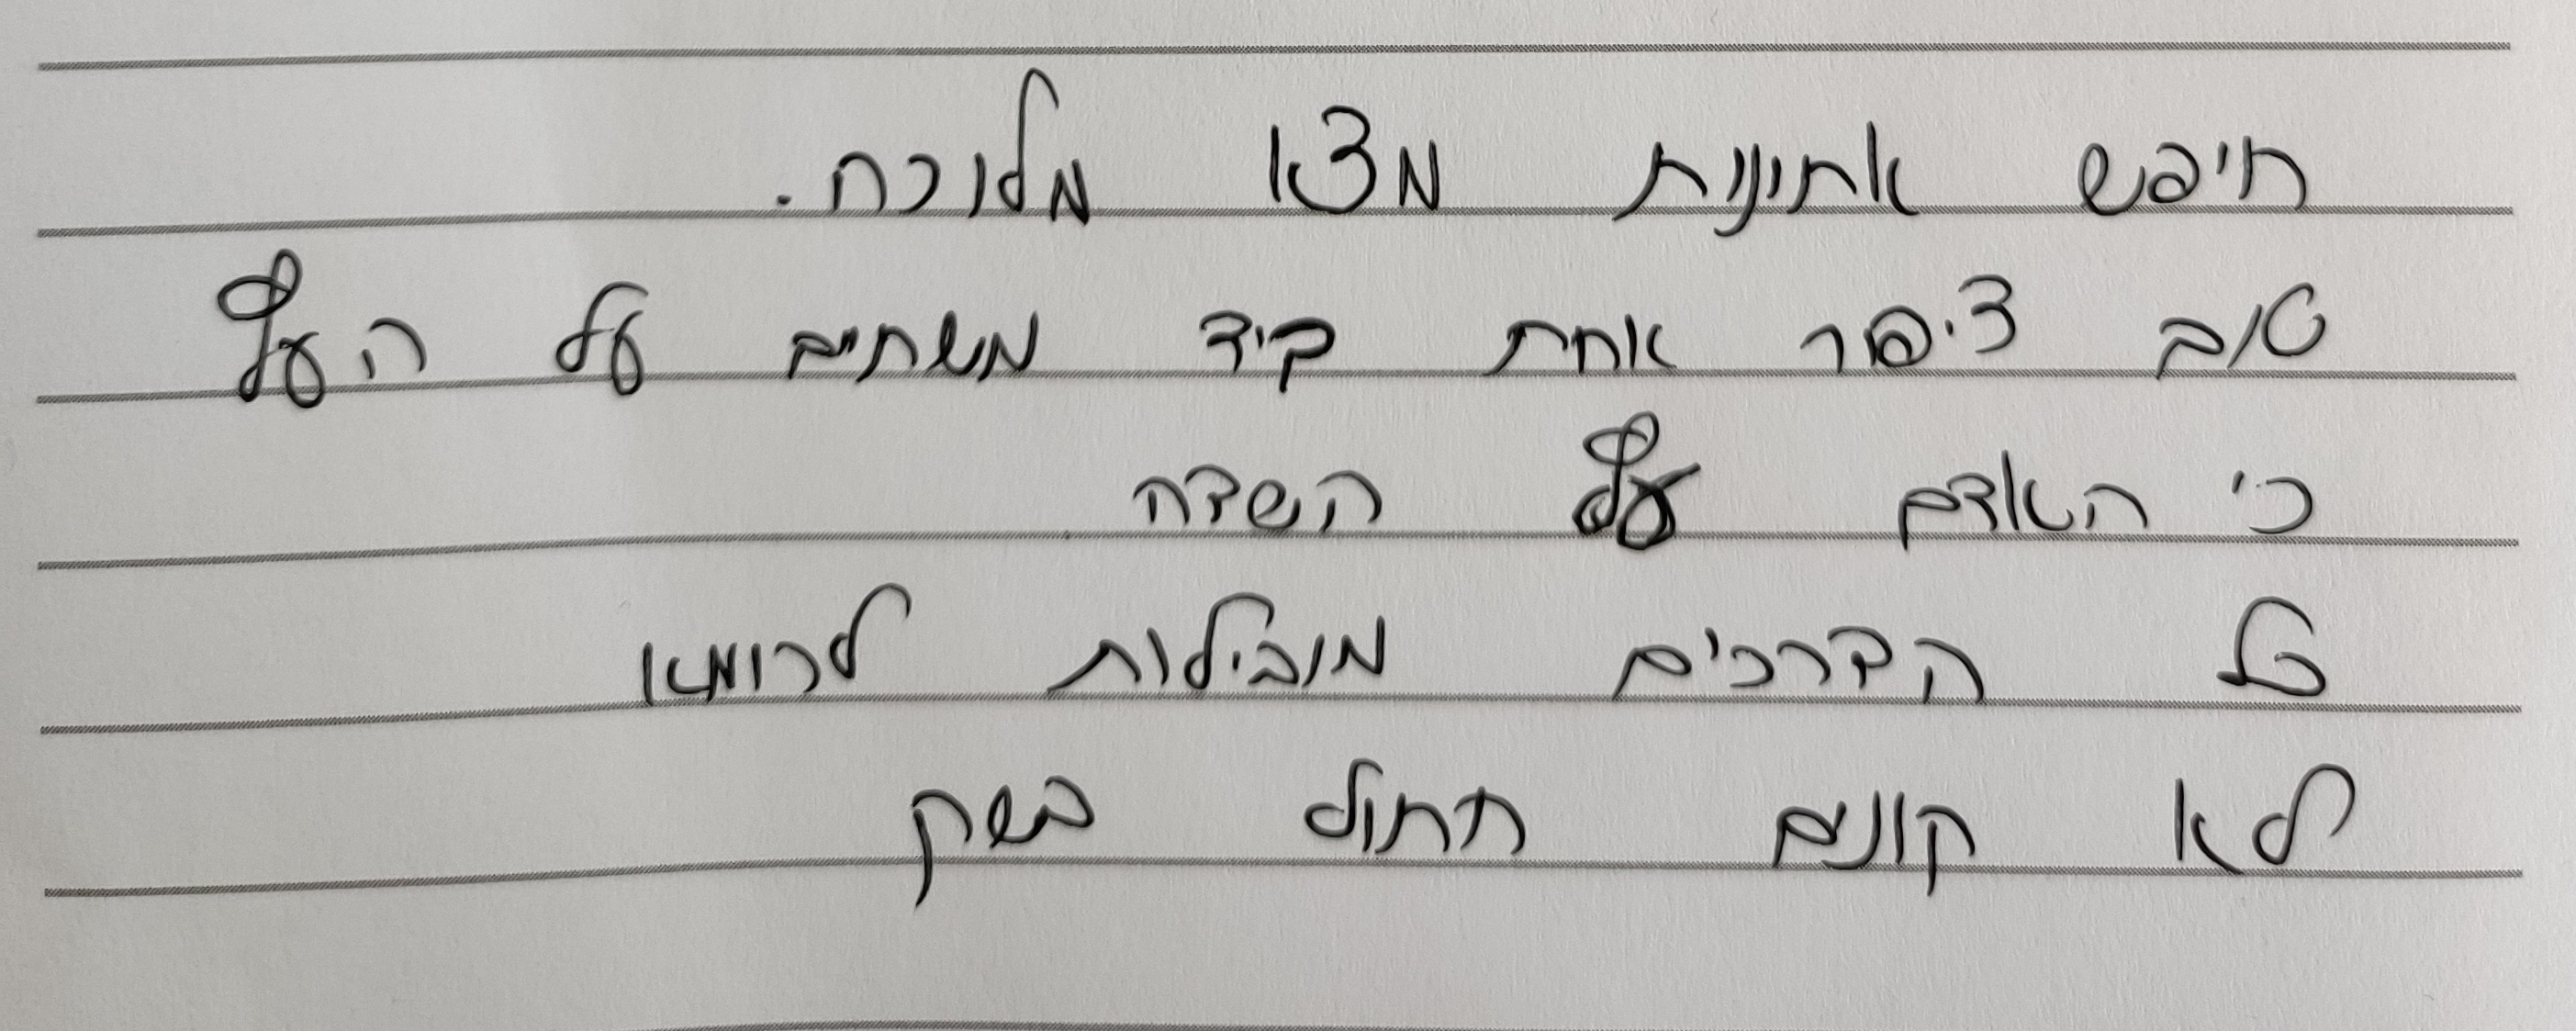 חיפש אתונות מצא מלוכה.
טוב ציפור אחת ביד משתיים על העץ
כי האדם עץ השדה
כל הדרכים מובילות לרומא
לא קונים חתול בשק